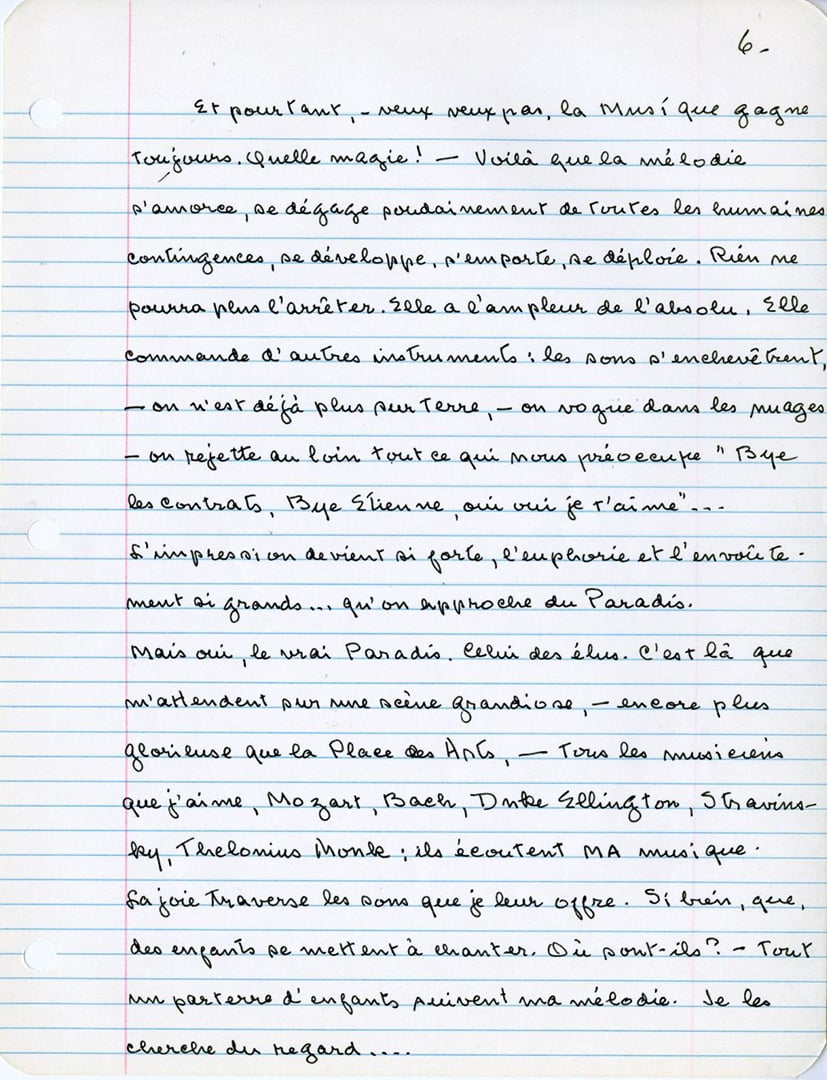 6-
Et pourtant, - veux veux pas, la Musique gagne
toujours. Quelle magie ! — Voilà que la mélodie
s'amorce, se dégage soudainement de toutes les humaines
contingences, se développe, s'emporte, se déploie. Rien ne
pourra plus l'arrêter. Elle a l'ampleur de l'absolu, Elle
commande d'autres instruments : les sons s'enchevêtrent,
— on n'est déjà plus sur Terre, — on vogue dans les nuages
— on rejette au loin tout ce qui nous préoccupe " Bye
les contrats, Bye Etienne, oui oui je t'aime"...
L'impression devient si forte, l'euphorie et l'envoûte-
ment si grands... qu'on approche du Paradis.
Mais oui, le vrai Paradis. Celui des élus. C'est là que
m'attendent sur une scène grandiose, — encore plus
glorieuse que la Place des Arts, — Tous les musiciens
que j'aime, Mozart, Bach, Duke Ellington, Stravins-
ky, Thelonius Monk ; ils écoutent MA musique.
La joie traverse les sons que je leur offre. Si bien, que,
des enfants se mettent à chanter. Où sont-ils ? - Tout
un parterre d'enfants suivent ma mélodie. Je les
cherche du regard....